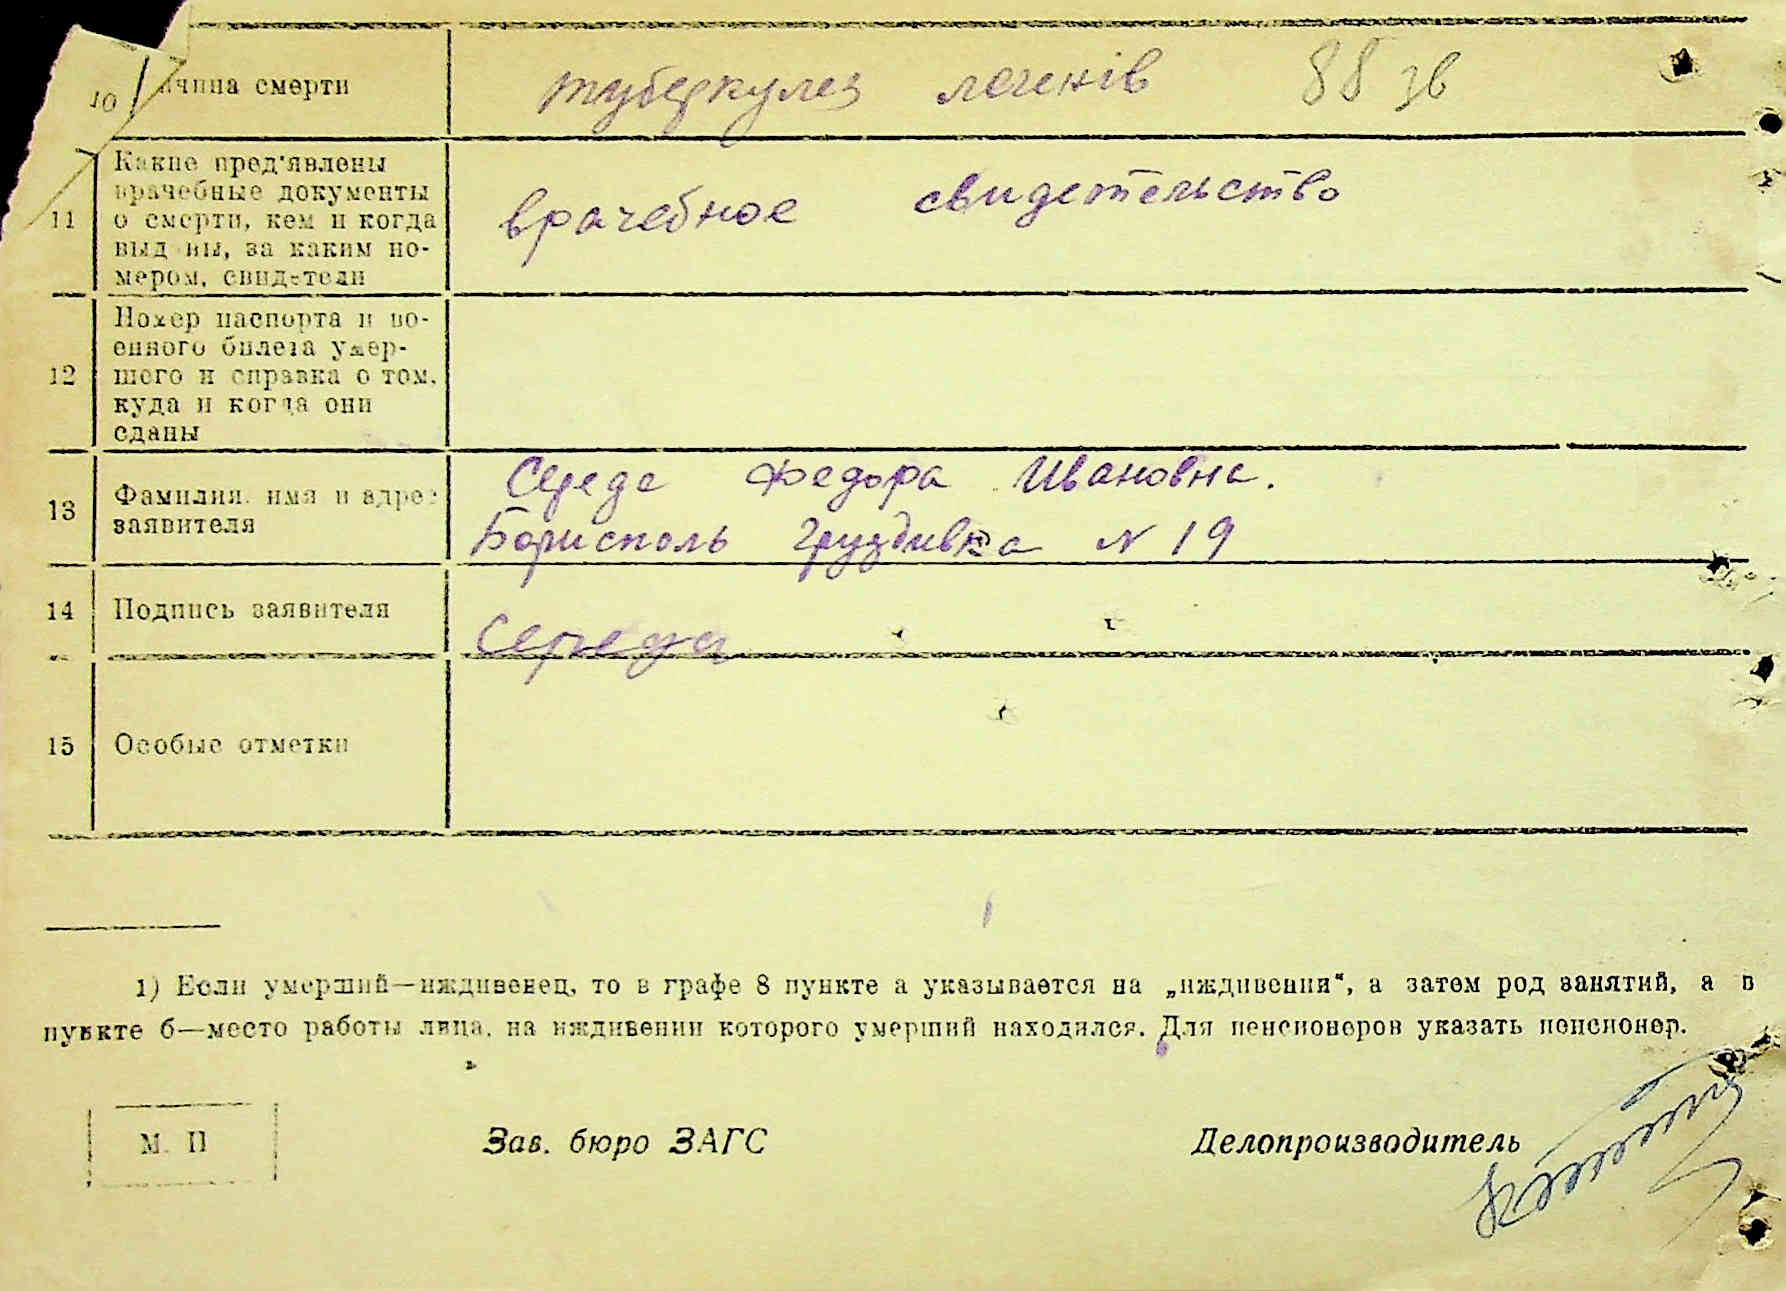 10 чина смерти туберкулез легенів
11 Какие пред'явлены
врачебные документы
о смерти, кем и когда
выд ны, за каким но-
мером, свидетели
врачебное свидетельство
12 Номер паспорта и во-
енного билета умер-
шего и справка о том,
куда и когда они
сданы
13 Фамилия, имя и адрес
заявителя
Середа Федора Ивановна.
Борисполь Груздивка N 19
14 Подпись заявителя Середа
15 Особые отметки
1) Если умерший—иждивенец, то в графе 8 пункте а указывается на „иждивении“, а затем род занятий, а в
пункте б—место работы лица, на иждивении которого умерший находился. Для пенсионеров указать пенсионер.
М. П Зав. бюро ЗАГС Делопроизводитель